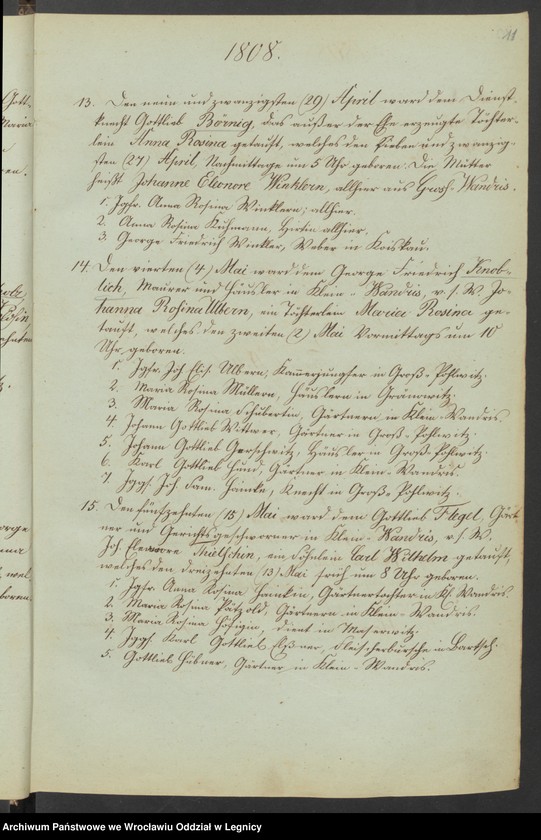 11
1808.
13. Den neun und zwanzigsten (29) April ward dem Dienst-
knecht Gottlieb Börnig, das außer der Ehe erzeugte Töchter-
lein Anna Rosina getauft, welches den sieben und zwanzig-
sten (27) April, Nachmittags um 5 Uhr geboren. Die Mutter
heißt Johanne Eleonore Winklern, allhier aus Gross-Wandris.
1. Jgfr. Anna Rosina Winklern; allhier.
2. Anna Rosina Kuhmann, Hirtin allhier.
3. George Friedrich Winkler, Weber in Koiskau.
14. Den vierten (4) Mai ward dem George Friedrich Knob-
lich, Maurer und Häusler in Klein-Wandris, v. s. W. Jo-
hanna Rosina Ulbern, ein Töchterlein Maria Rosina ge-
tauft, welches den zweiten (2) Mai Vormittags um 10
Uhr geboren.
1. Jgfr. Joh. Elis. Ulbern, Kammerjungfer in Groß-Pohlwitz.
2. Maria Rosina Müllern, Häuslern in Granowitz.
3. Maria Rosina Schubertin, Gärtnern in Klein-Wandris.
4. Johann Gottlieb Wittwer, Gärtner in Groß-Pohlwitz.
5. Johann Gottlieb Gerschwitz, Häusler in Groß-Pohlwitz.
6. Karl Gottlieb Hund, Gärtner in Klein-Wandris.
7. Jggs. Joh. Sam. Hainke, Knecht in Groß-Pohlwitz.
15. Den fünfzehnten (15) Mai ward dem Gottlieb Flegel, Gärt-
ner und Gerichtsgeschworner in Klein-Wandris, v. s. W.
Joh. Eleonore ein Söhnlein Carl Wilhelm getauft,
welches den dreizehnten (13) Mai früh um 8 Uhr geboren.
1. Jgfr. Anna Rosina Hainkin, Gärtnertochter in Kl. Wandris.
2. Maria Rosina Pätzold, Gärtnern in Klein-Wandris.
3. Maria Rosina dient in Maserwitz.
4. Jggs. Karl Gottlieb Fleischerbursche in Bartsch.
5. Gottlieb Hübner, Gärtner in Klein-Wandris.
Archiwum Państwowe we Wrocławiu Oddział w Legnicy